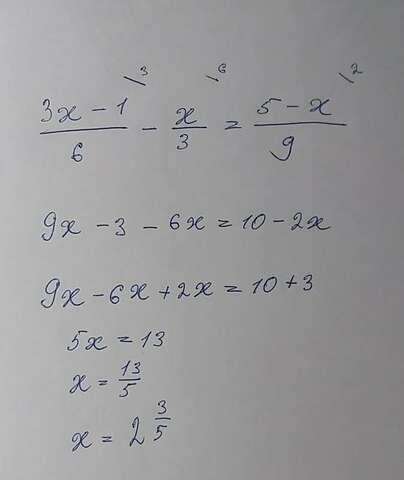 \3 \6 \2
(3x - 1)/6 - x/3 = (5 - x)/9
9x - 3 - 6x = 10 - 2x
9x - 6x + 2x = 10 + 3
5x = 13
x = 13/5
x = 2 3/5